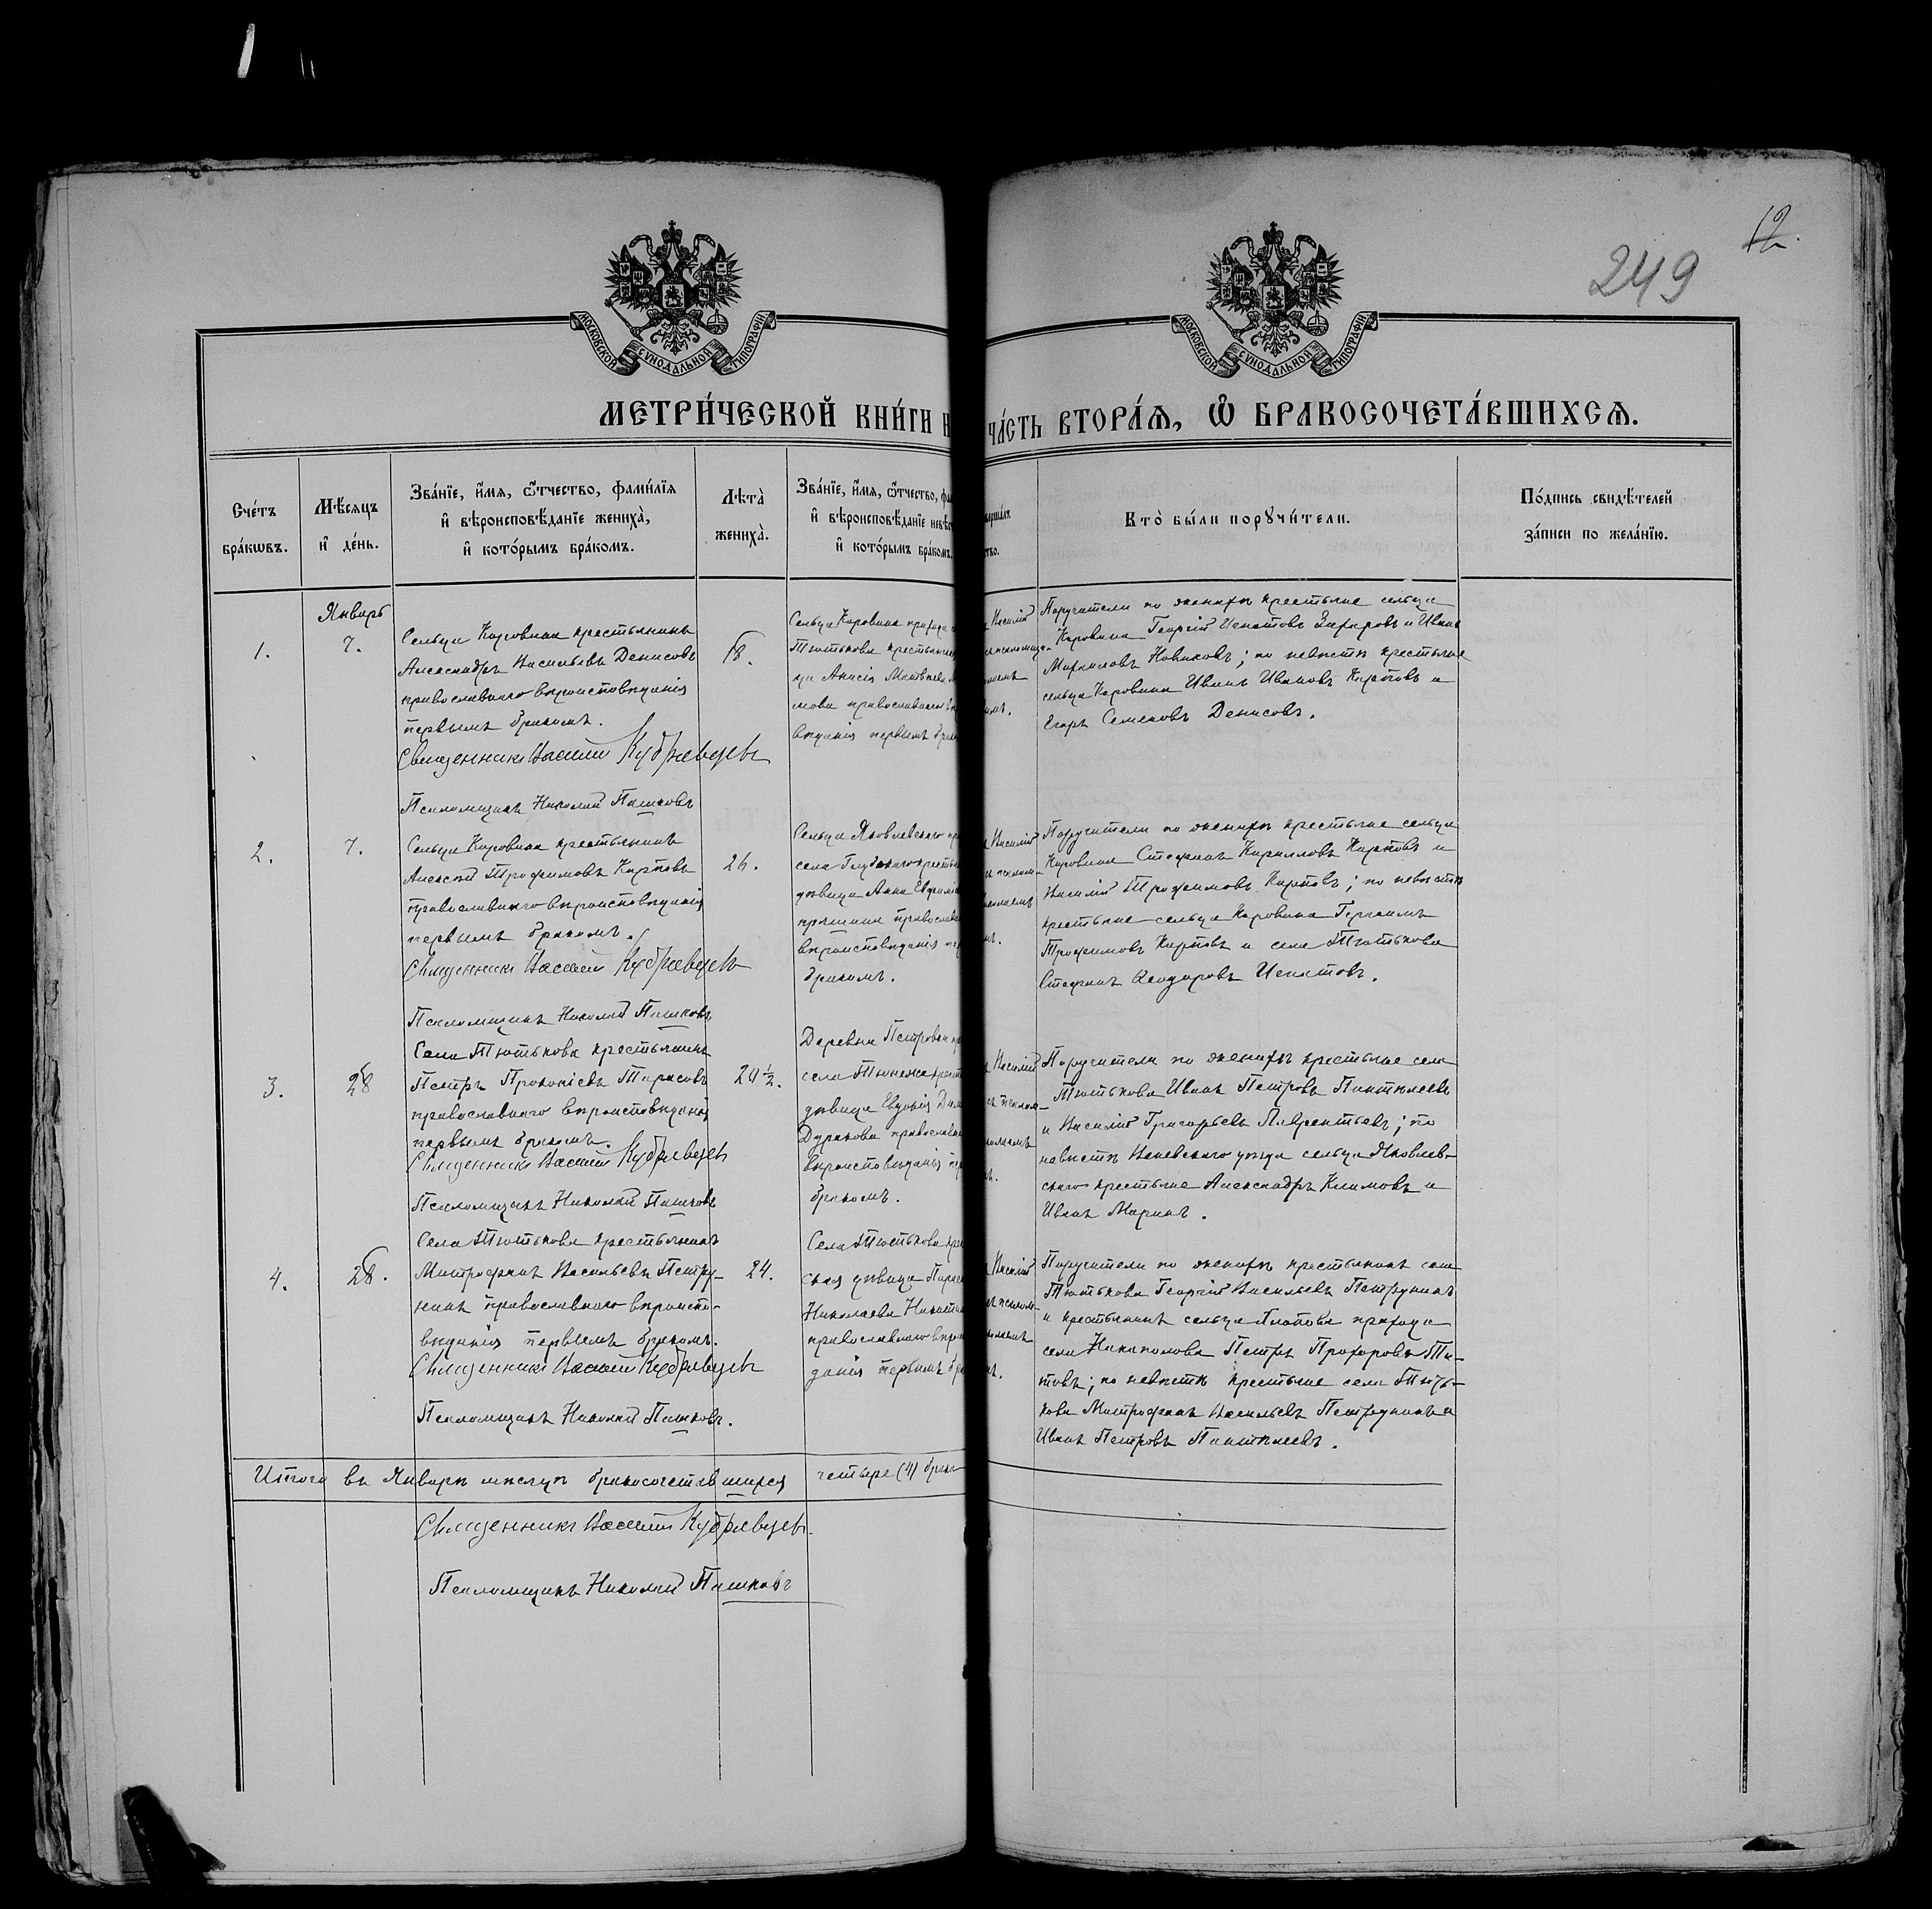 12.
249
МОСКОВСКОЙ СѴНОДАЛЬНОЙ ТИПОГРАФІИ
МОСКОВСКОЙ СѴНОДАЛЬНОЙ ТИПОГРАФІИ
МЕТРИ́ЧЕСКОЙ КНИ́ГИ Н
ЧА́СТЬ ВТОРА́Ѧ, Ѽ БРАКОСОЧЕТА́ВШИХСѦ.
Сче́тъ бра́кѡвъ.
Мѣ́сѧцъ и҆ де́нь.
Зва́нїе, и҆́мѧ, ѻ҆́тчество, фами́лїѧ
и҆ вѣроисповѣ́данїе жениха̀,
и҆ кото́рымъ бра́комъ.
Лѣ́та̀ жениха̀.
Зва́нїе, и҆́мѧ, ѻ҆́тчество, фа
и҆ вѣроисповѣ́данїе невѣ́с
и҆ кото́рымъ бра́комъ.
вершалъ
ство.
Кто̀ бы́ли порꙋчи́тели.
По́дпись свидѣ́телей
за́писи по жела́нїю.
Январь
1.
7.
Сельца Каровина крестьянинъ
Александръ Васильевъ Денисовъ
православнаго вѣроисповѣданія
первымъ бракомъ.
Священникъ Василій Кудрявцевъ
Псаломщикъ Николай Пашковъ
18.
Сельца Каровина прихода с
Тютькова крестьянская
ца Анисія Матвѣева
мова православнаго в
вѣданія первымъ брак
Василій
омъ.
Поручители по женихѣ крестьяне сельца
Каровина Георгій Игнатовъ Захаровъ и Иванъ
Новиковъ; по невѣстѣ крестьяне
сельца Каровина Иванъ Ивановъ Карповъ и
Егоръ Семеновъ Денисовъ.
2.
7.
Сельца Каровина крестьянинъ
Алексѣй Трофимовъ Карповъ
православнаго вѣроисповѣданія
первымъ бракомъ.
Священникъ Василій Кудрявцевъ
Псаломщикъ Николай Пашковъ
26.
Сельца Яковлевскаго пр
села крестья
дѣвица Анна Евфимі
православ
вѣроисповѣданія пе
бракомъ.
Василій
псалом-
Поручители по женихѣ крестьяне сельца
Каровина Стефанъ Кирилловъ Карповъ и
Василій Трофимовъ Карповъ; по невѣстѣ
крестьяне сельца Каровина Герасимъ
Трофимовъ Карповъ и села Тютькова
Стефанъ Ѳеодоровъ Игнатовъ.
3.
28
Села Тютькова крестьянинъ
Петръ Прокопіевъ Тарасовъ
православнаго вѣроисповѣданія
первымъ бракомъ.
Священникъ Василій Кудрявцевъ
Псаломщикъ Николай Пашковъ
24 ½.
Деревни Петровки пр
села Тюнежа крест
дѣвица Евдокія Дим
Дуракова православн
вѣроисповѣданія пер
бракомъ.
Василій
псалом-
Поручители по женихѣ крестьяне села
Тютькова Иванъ Петровъ Пантелеевъ
и Василій Григорьевъ Лаврентьевъ; по
невѣстѣ Веневскаго уѣзда сельца Яковлев-
скаго крестьяне Александръ Климовъ и
Иванъ Маринъ.
4.
28.
Села Тютькова крестьянинъ
Митрофанъ Васильевъ Петру-
нинъ православнаго вѣроиспо-
вѣданія первымъ бракомъ.
Священникъ Василій Кудрявцевъ
Псаломщикъ Николай Пашковъ.
24.
Села Тютькова крес
ская дѣвица Параск
Николаева Никити
православнаго вѣроис
данія первымъ бра
Василій
псалом-
Поручители по женихѣ крестьянинъ села
Тютькова Георгій Васильевъ Петрунинъ
и крестьянинъ сельца прихода
села Петръ Прохоровъ Ти-
товъ; по невѣстѣ крестьяне села Тють-
кова Митрофанъ Васильевъ Петрунинъ и
Иванъ Петровъ Пантелеевъ.
Итого въ Январѣ мѣсяцѣ бракосочетавшихся четыре (4) брака
Священникъ Василій Кудрявцевъ.
Псаломщикъ Николай Пашковъ